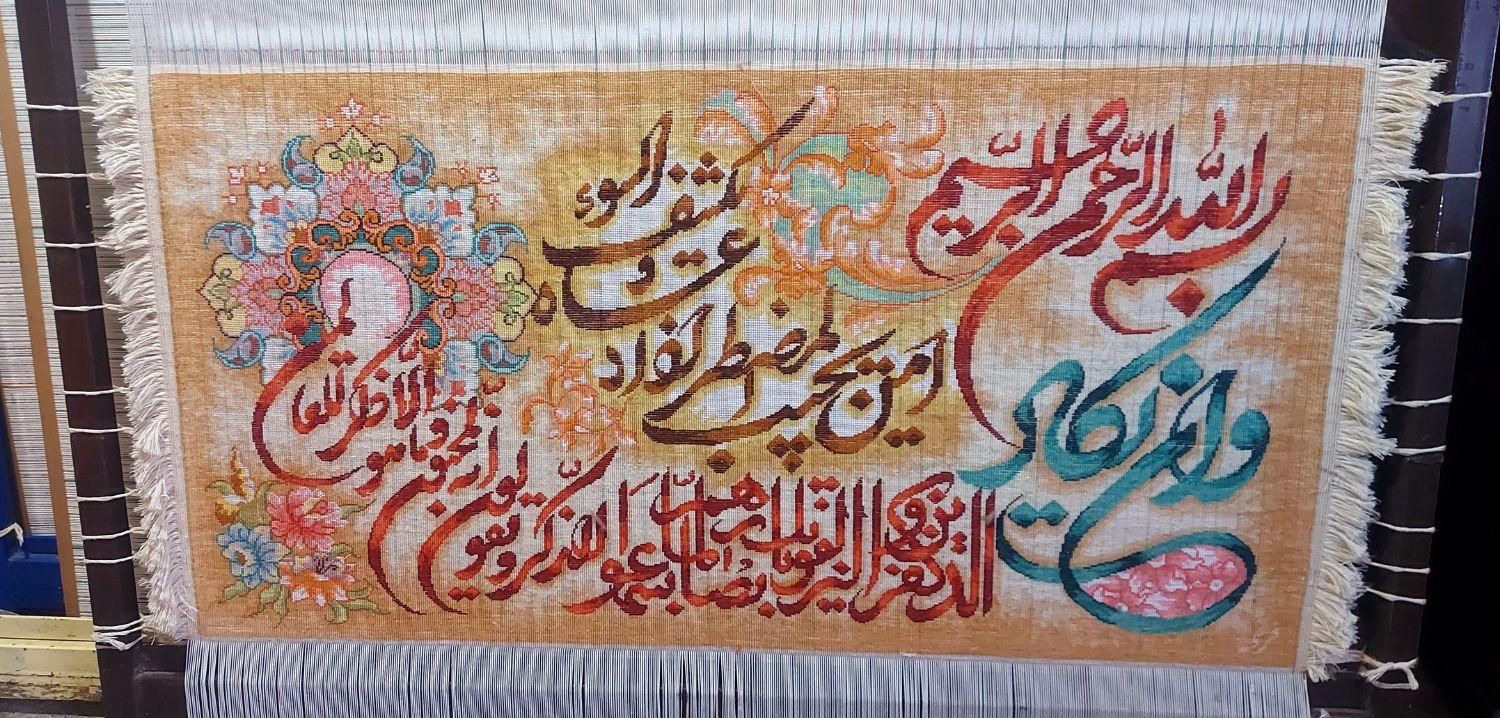 بسم الله الرحمن الرحیم
وان یکاد
الذین کفروا لیزلقونک بابصارهم لما سمعوا الذکر و یقولون
انه لمجنون و ما هو
الا ذکر للعالمین
امن یجیب المضطر اذا دعاه و
یکشف السوء